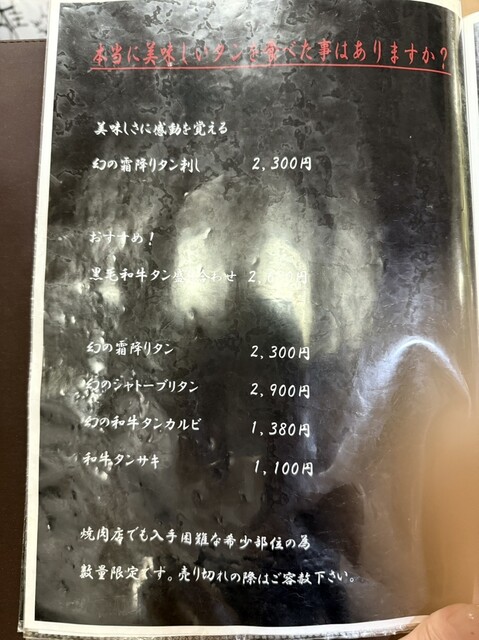 本当に美味しいタンを食べた事はありますか？
美味しさに感動を覚える
幻の霜降りタン刺し 2,300円
おすすめ！
黒毛和牛タン盛り合わせ
幻の霜降りタン 2,300円
幻のシャトーブリタン 2,900円
幻の和牛タンカルビ 1,380円
和牛タンサキ 1,100円
焼肉店でも入手困難な希少部位の為
数量限定です。売り切れの際はご容赦下さい。